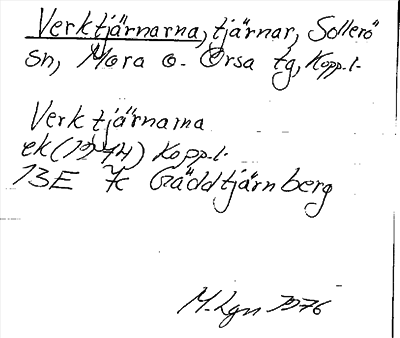 Verktjärnarna, tjärnar, Sollerö
sn, Mora o. Orsa tg, Kopp.l.
Verktjärnarna
ek (1974) Kopp.l.
13E 7c Gäddtjärnberg
M. Lgn 1976